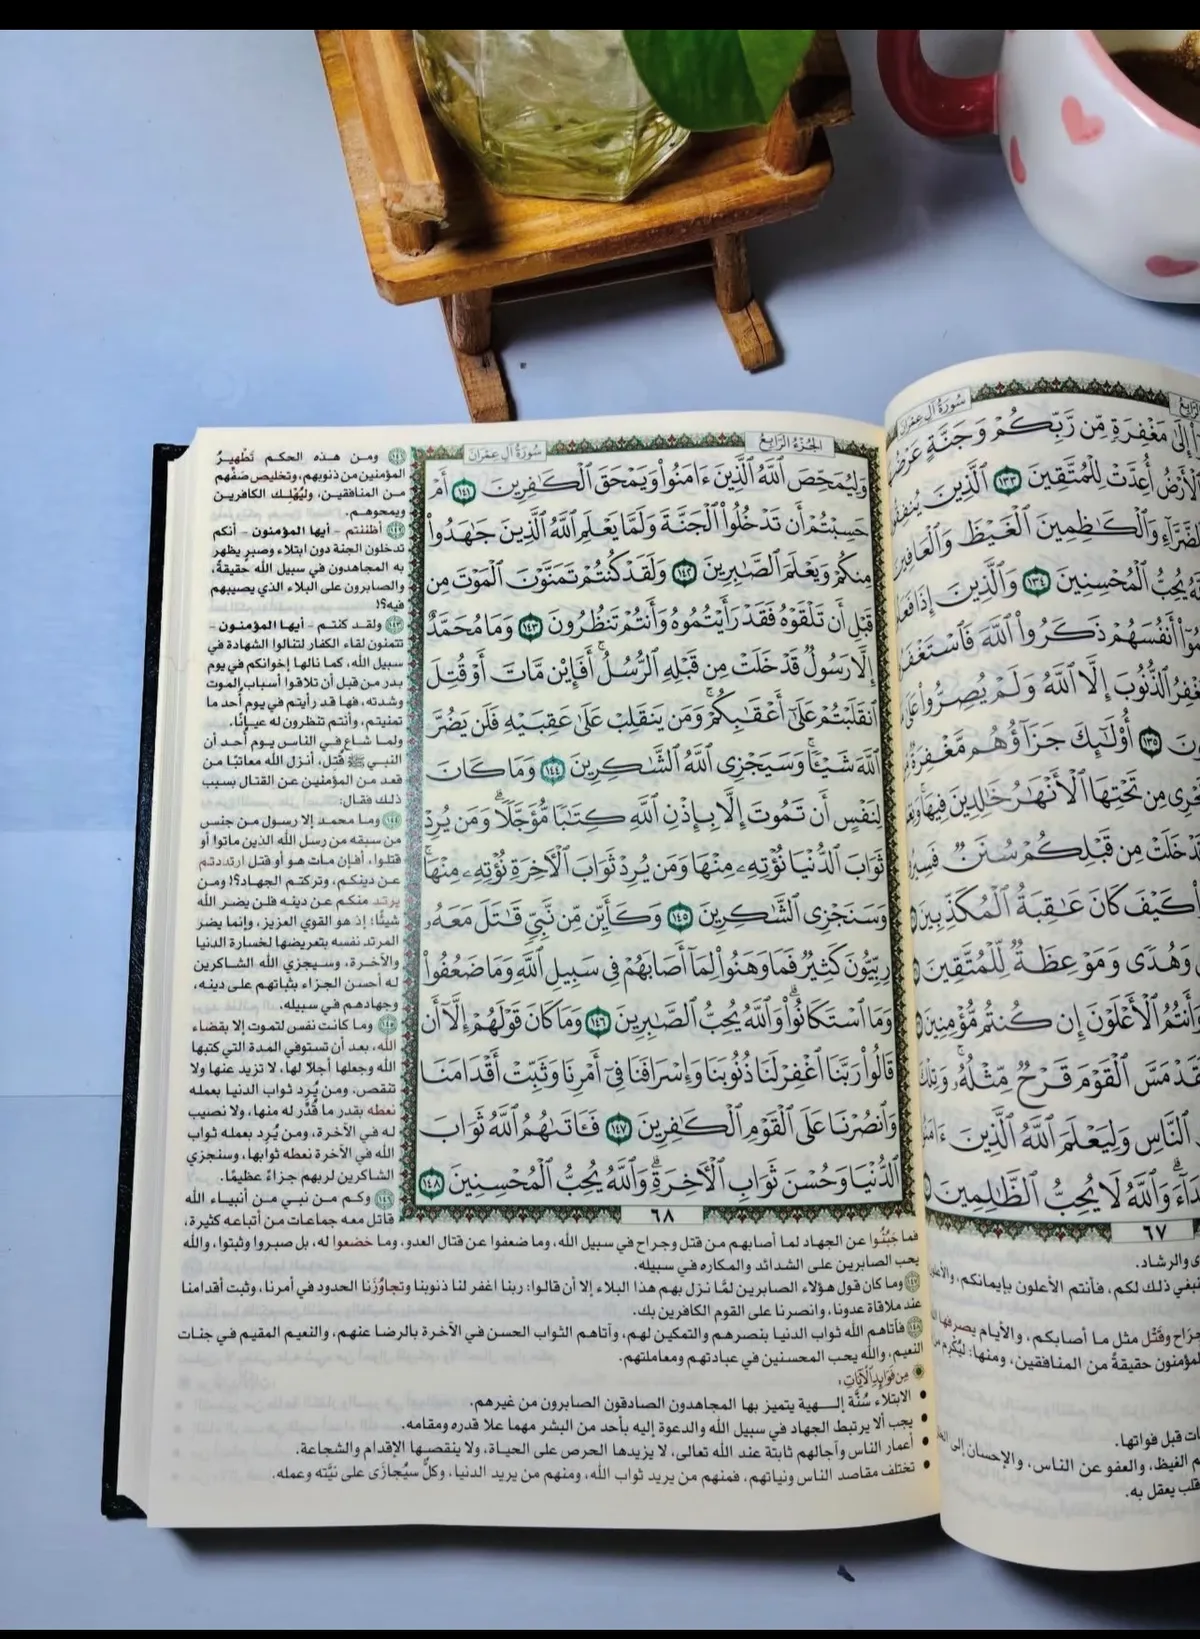 سُورَةُ آلِ عِمْرَانَ
إِلَىٰ مَغْفِرَةٍ مِّن رَّبِّكُمْ وَجَنَّةٍ
أُعِدَّتْ لِلْمُتَّقِينَ ١٣٣ ٱلَّذِينَ
وَٱلْكَٰظِمِينَ ٱلْغَيْظَ وَٱلْعَافِينَ
يُحِبُّ ٱلْمُحْسِنِينَ ١٣٤ وَٱلَّذِينَ إِذَا
أَنفُسَهُمْ ذَكَرُوا۟ ٱللَّهَ
ٱلذُّنُوبَ إِلَّا ٱللَّهُ وَلَمْ يُصِرُّوا۟ عَلَىٰ
١٣٥ أُو۟لَٰٓئِكَ جَزَآؤُهُم مَّغْفِرَةٌ
مِن تَحْتِهَا ٱلْأَنْهَٰرُ خَٰلِدِينَ فِيهَا
خَلَتْ مِن قَبْلِكُمْ سُنَنٌ
كَيْفَ كَانَ عَٰقِبَةُ ٱلْمُكَذِّبِينَ
وَهُدًى وَمَوْعِظَةٌ لِّلْمُتَّقِينَ
وَأَنتُمُ ٱلْأَعْلَوْنَ إِن كُنتُم مُّؤْمِنِينَ
مَسَّ ٱلْقَوْمَ قَرْحٌ مِّثْلُهُۥ
ٱلنَّاسِ وَلِيَعْلَمَ ٱللَّهُ ٱلَّذِينَ
وَٱللَّهُ لَا يُحِبُّ ٱلظَّٰلِمِينَ
٦٧
والرشاد.
ينبغي ذلك لكم، فأنتم الأعلون بإيمانكم،
جراح وقَتْل مثل ما أصابكم، والأيام يصرفها
المؤمنون حقيقةً من المنافقين، ومنها:
قبل فواتها.
الغيظ، والعفو عن الناس، والإحسان إلى
قلب يعقل به.
الجُزْءُ الرَّابِعُ
سُورَةُ آلِ عِمْرَانَ
وَلِيُمَحِّصَ ٱللَّهُ ٱلَّذِينَ ءَامَنُوا۟ وَيَمْحَقَ ٱلْكَٰفِرِينَ ١٤١ أَمْ
حَسِبْتُمْ أَن تَدْخُلُوا۟ ٱلْجَنَّةَ وَلَمَّا يَعْلَمِ ٱللَّهُ ٱلَّذِينَ جَٰهَدُوا۟
مِنكُمْ وَيَعْلَمَ ٱلصَّٰبِرِينَ ١٤٢ وَلَقَدْ كُنتُمْ تَمَنَّوْنَ ٱلْمَوْتَ مِن
قَبْلِ أَن تَلْقَوْهُ فَقَدْ رَأَيْتُمُوهُ وَأَنتُمْ تَنظُرُونَ ١٤٣ وَمَا مُحَمَّدٌ
إِلَّا رَسُولٌ قَدْ خَلَتْ مِن قَبْلِهِ ٱلرُّسُلُ ۚ أَفَإِي۟ن مَّاتَ أَوْ قُتِلَ
ٱنقَلَبْتُمْ عَلَىٰٓ أَعْقَٰبِكُمْ ۚ وَمَن يَنقَلِبْ عَلَىٰ عَقِبَيْهِ فَلَن يَضُرَّ
ٱللَّهَ شَيْـًٔا ۗ وَسَيَجْزِى ٱللَّهُ ٱلشَّٰكِرِينَ ١٤٤ وَمَا كَانَ
لِنَفْسٍ أَن تَمُوتَ إِلَّا بِإِذْنِ ٱللَّهِ كِتَٰبًا مُّؤَجَّلًا ۗ وَمَن يُرِدْ
ثَوَابَ ٱلدُّنْيَا نُؤْتِهِۦ مِنْهَا وَمَن يُرِدْ ثَوَابَ ٱلْءَاخِرَةِ نُؤْتِهِۦ مِنْهَا ۚ
وَسَنَجْزِى ٱلشَّٰكِرِينَ ١٤٥ وَكَأَيِّن مِّن نَّبِىٍّ قَٰتَلَ مَعَهُۥ
رِبِّيُّونَ كَثِيرٌ فَمَا وَهَنُوا۟ لِمَآ أَصَابَهُمْ فِى سَبِيلِ ٱللَّهِ وَمَا ضَعُفُوا۟
وَمَا ٱسْتَكَانُوا۟ ۗ وَٱللَّهُ يُحِبُّ ٱلصَّٰبِرِينَ ١٤٦ وَمَا كَانَ قَوْلَهُمْ إِلَّآ أَن
قَالُوا۟ رَبَّنَا ٱغْفِرْ لَنَا ذُنُوبَنَا وَإِسْرَافَنَا فِىٓ أَمْرِنَا وَثَبِّتْ أَقْدَامَنَا
وَٱنصُرْنَا عَلَى ٱلْقَوْمِ ٱلْكَٰفِرِينَ ١٤٧ فَـَٔاتَىٰهُمُ ٱللَّهُ ثَوَابَ
ٱلدُّنْيَا وَحُسْنَ ثَوَابِ ٱلْءَاخِرَةِ ۗ وَٱللَّهُ يُحِبُّ ٱلْمُحْسِنِينَ ١٤٨
٦٨
١٤١ ومن هذه الحكم تَطْهِيرُ
المؤمنين من ذنوبهم، وتخليص صفّهم
من المنافقين، وليُهْلِك الكافرين
ويمحوهم.
١٤٢ أظننتم - أيها المؤمنون - أنكم
تدخلون الجنة دون ابتلاء وصبر يظهر
به المجاهدون في سبيل الله حقيقةً،
والصابرون على البلاء الذي يصيبهم
فيه؟!
١٤٣ ولقد كنتم - أيها المؤمنون -
تتمنون لقاء الكفار لتنالوا الشهادة في
سبيل الله، كما نالها إخوانكم في يوم
بدر من قبل أن تلاقوا أسباب الموت
وشدته، فها قد رأيتم في يوم أحد ما
تمنيتم، وأنتم تنظرون له عيانًا.
ولما شاع في الناس يوم أُحد أن
النبي ﷺ قُتل، أنزل الله معاتبًا من
قعد من المؤمنين عن القتال بسبب
ذلك فقال:
١٤٤ وما محمد إلا رسول من جنس
من سبقه من رسل الله الذين ماتوا أو
قتلوا، أفإن مات هو أو قتل ارتددتم
عن دينكم، وتركتم الجهاد؟! ومن
يرتد منكم عن دينه فلن يضر الله
شيئًا؛ إذ هو القوي العزيز، وإنما يضر
المرتد نفسه بتعريضها لخسارة الدنيا
والآخرة، وسيجزي الله الشاكرين
له أحسن الجزاء بثباتهم على دينه،
وجهادهم في سبيله.
١٤٥ وما كانت نفس لتموت إلا بقضاء
الله، بعد أن تستوفي المدة التي كتبها
الله وجعلها أجلًا لها، لا تزيد عنها ولا
تنقص. ومن يُرِد ثواب الدنيا بعمله
نعطه بقدر ما قُدِّر له منها، ولا نصيب
له في الآخرة، ومن يُرِد بعمله ثواب
الله في الآخرة نعطه ثوابها، وسنجزي
الشاكرين لربهم جزاءً عظيمًا.
١٤٦ وكم من نبي من أنبياء الله
قاتل معه جماعات من أتباعه كثيرة،
فما جَبُنُوا عن الجهاد لما أصابهم من قتل وجراح في سبيل الله، وما ضعفوا عن قتال العدو، وما خضعوا له، بل صبروا وثبتوا، والله
يحب الصابرين على الشدائد والمكاره في سبيله.
١٤٧ وما كان قول هؤلاء الصابرين لمَّا نزل بهم هذا البلاء إلا أن قالوا: ربنا اغفر لنا ذنوبنا وتجاوُزَنا الحدود في أمرنا، وثبت أقدامنا
عند ملاقاة عدونا، وانصرنا على القوم الكافرين بك.
١٤٨ فآتاهم الله ثواب الدنيا بنصرهم والتمكين لهم، وآتاهم الثواب الحسن في الآخرة بالرضا عنهم، والنعيم المقيم في جنات
النعيم، والله يحب المحسنين في عبادتهم ومعاملتهم.
مِن فَوَائِدِ الآيَاتِ:
• الابتلاء سُنَّة إلـــهية يتميز بها المجاهدون الصادقون الصابرون من غيرهم.
• يجب ألا يرتبط الجهاد في سبيل الله والدعوة إليه بأحد من البشر مهما علا قدره ومقامه.
• أعمار الناس وآجالهم ثابتة عند الله تعالى، لا يزيدها الحرص على الحياة، ولا ينقصها الإقدام والشجاعة.
• تختلف مقاصد الناس ونياتهم، فمنهم من يريد ثواب الله، ومنهم من يريد الدنيا، وكلٌّ سيُجازَى على نيَّته وعمله.